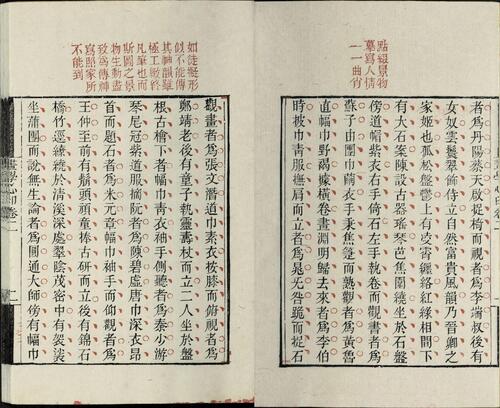 點綴景物
摹寫人情
一一曲肖
者為丹陽蔡天啟捉椅而視者為李端叔後有
女奴雲鬟翠飾侍立自然富貴風韻乃晉卿之
家姬也孤松盤鬱上有凌霄纏絡紅綠相間下
有大石案陳設古器瑤琴芭焦圍繞坐於石盤
傍道帽紫衣右手倚石左手執卷而觀書者為
蘇子由團巾繭衣手秉焦箑而熟觀者為黃魯
直幅巾野褐據橫卷畫淵明歸去來者為李伯
時披巾青服撫肩而立者為晁无咎跪而捉石
如徒擬形
似不能傳
其神韻雖
極工緻終
凡筆也而
斯圖之景
物生動盡
致為傳神
寫照家所
不能到
觀畫者為張文潛道巾素衣按膝而俯視者為
鄭靖老後有童子執靈壽杖而立二人坐於盤
根古檜下者幅巾青衣袖手側聽者為秦少游
琴尼冠紫道服摘阮者為陳碧虛唐巾深衣昂
首而題石者為米元章幅巾袖手而仰觀者為
王仲至前有鬅頭頑童捧古研而立後有錦石
橋竹逕繚繞於清溪深處翠陰茂密中有袈裟
坐蒲團而說無生論者為圓通大師傍有幅巾
畫學心印卷二
二